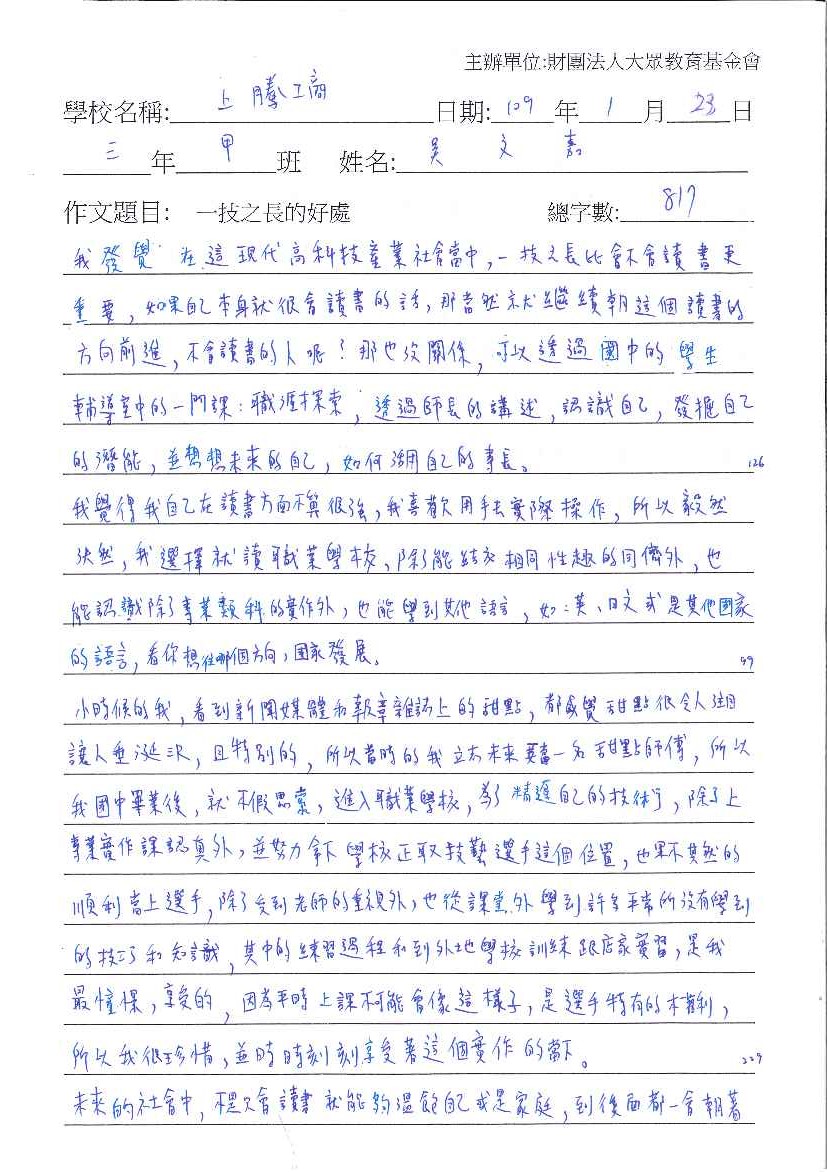 主辦單位:財團法人大眾教育基金會
學校名稱: 上騰工商 日期: 109 年 1 月 23 日
三 年 甲 班 姓名: 吳文嘉
作文題目: 一技之長的好處 總字數: 817
我發覺在這現代高科技產業社會當中,一技之長比會不會讀書更
重要,如果自己本身就很會讀書的話,那當然就繼續朝這個讀書的
方向前進,不會讀書的人呢?那也沒關係,可以透過國中的學生
輔導室中的一門課:職涯探索,透過師長的講述,認識自己,發掘自己
的潛能,並想想未來的自己,如何活用自己的專長。 126
我覺得我自己在讀書方面不算很強,我喜歡用手去實際操作,所以毅然
決然,我選擇就讀職業學校,除了能結交相同性趣的同儕外,也
能認識除了專業類科的實作外,也能學到其他語言,如:英、日文或是其他國家
的語言,看你想往哪個方向,國家發展。 99
小時候的我,看到新聞媒體和報章雜誌上的甜點,都感覺甜點很令人
讓人垂涎,且特別的,所以當時的我立志未來要當一名甜點師傅,所以
我國中畢業後,就不假思索,進入職業學校,為了精進自己的技術,除了上
專業實作課認真外,並努力拿下學校正取技藝選手這個位置,也果不其然的
順利當上選手,除了受到老師的重視外,也從課堂外學到許多平常所沒有學到
的技巧和知識,其中的練習過程和到外地學校訓練跟店家實習,是我
最憧憬,享受的,因為平時上課不可能會像這樣子,是選手特有的權利,
所以我很珍惜,並時時刻刻享受著這個實作的當下。 229
未來的社會中,不是只會讀書就能夠溫飽自己或是家庭,到後面都一會朝著